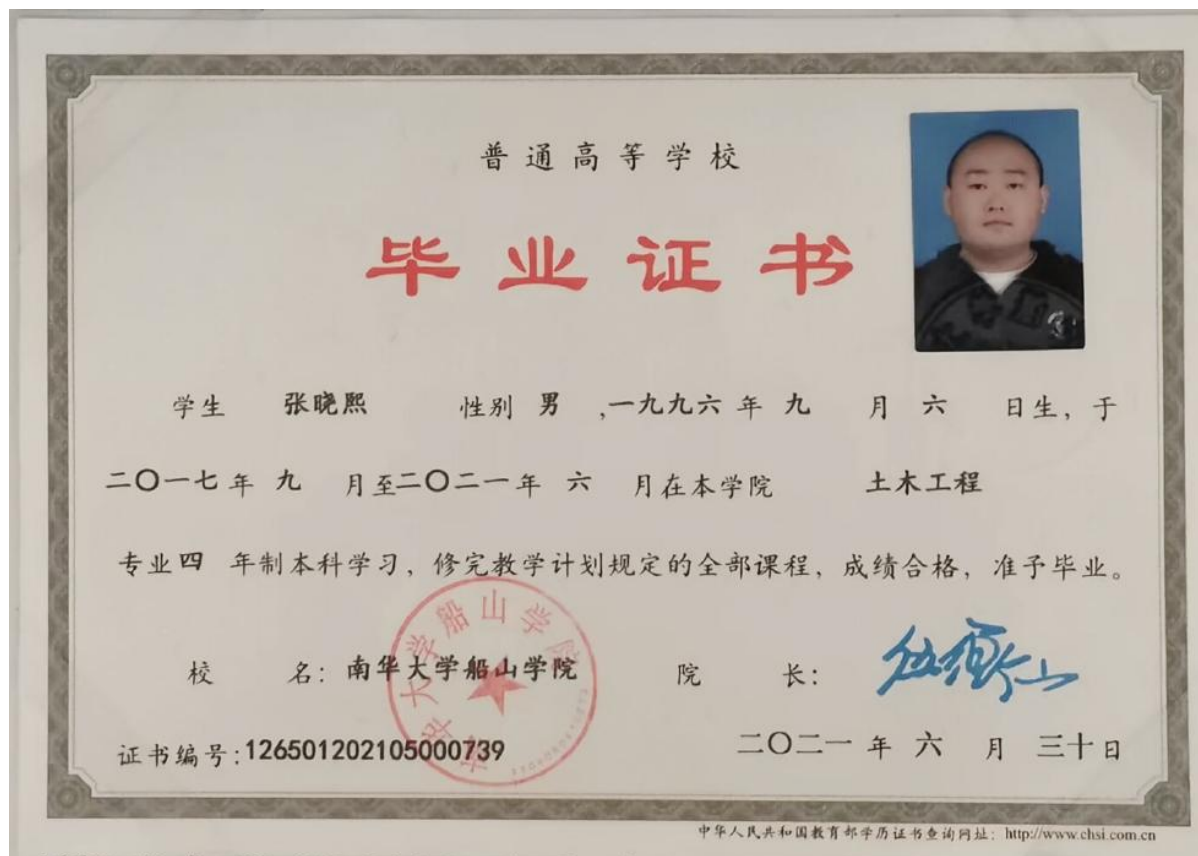 普通高等学校
毕业证书
学生 张晓熙 性别 男 ,一九九六 年 九 月 六 日生, 于
二〇一七 年 九 月至二〇二一年 六 月在本学院 土木工程
专业四 年制本科学习, 修完教学计划规定的全部课程, 成绩合格, 准予毕业。
校 名: 南华大学船山学院 院 长:
南华大学船山学院
证书编号:126501202105000739 二〇二一 年 六 月 三十日
中华人民共和国教育部学历证书查询网址: http://www.chsi.com.cn